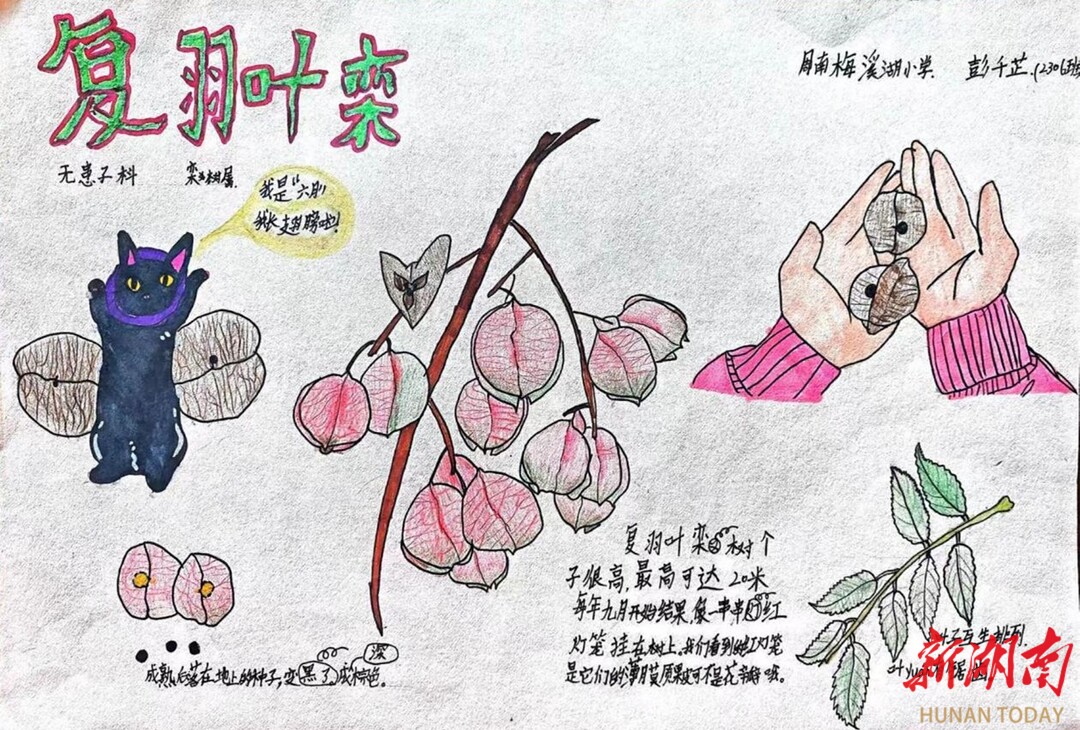 复羽叶栾
周南梅溪湖小学 彭千芷(2306班
无患子科 栾树属
我是"六月"
我长翅膀啦!
复羽叶栾的树个
子很高,最高可达20米
每年九月开始结果,像一串串的红
灯笼挂在树上,我们看到的红灯笼
是它们的薄膜质果皮可不是花瓣哦。
深
成熟后落在地上的种子,变黑了,成棕色。
叶子互生排列
叶yuan有锯齿
新湖南
HUNAN TODAY